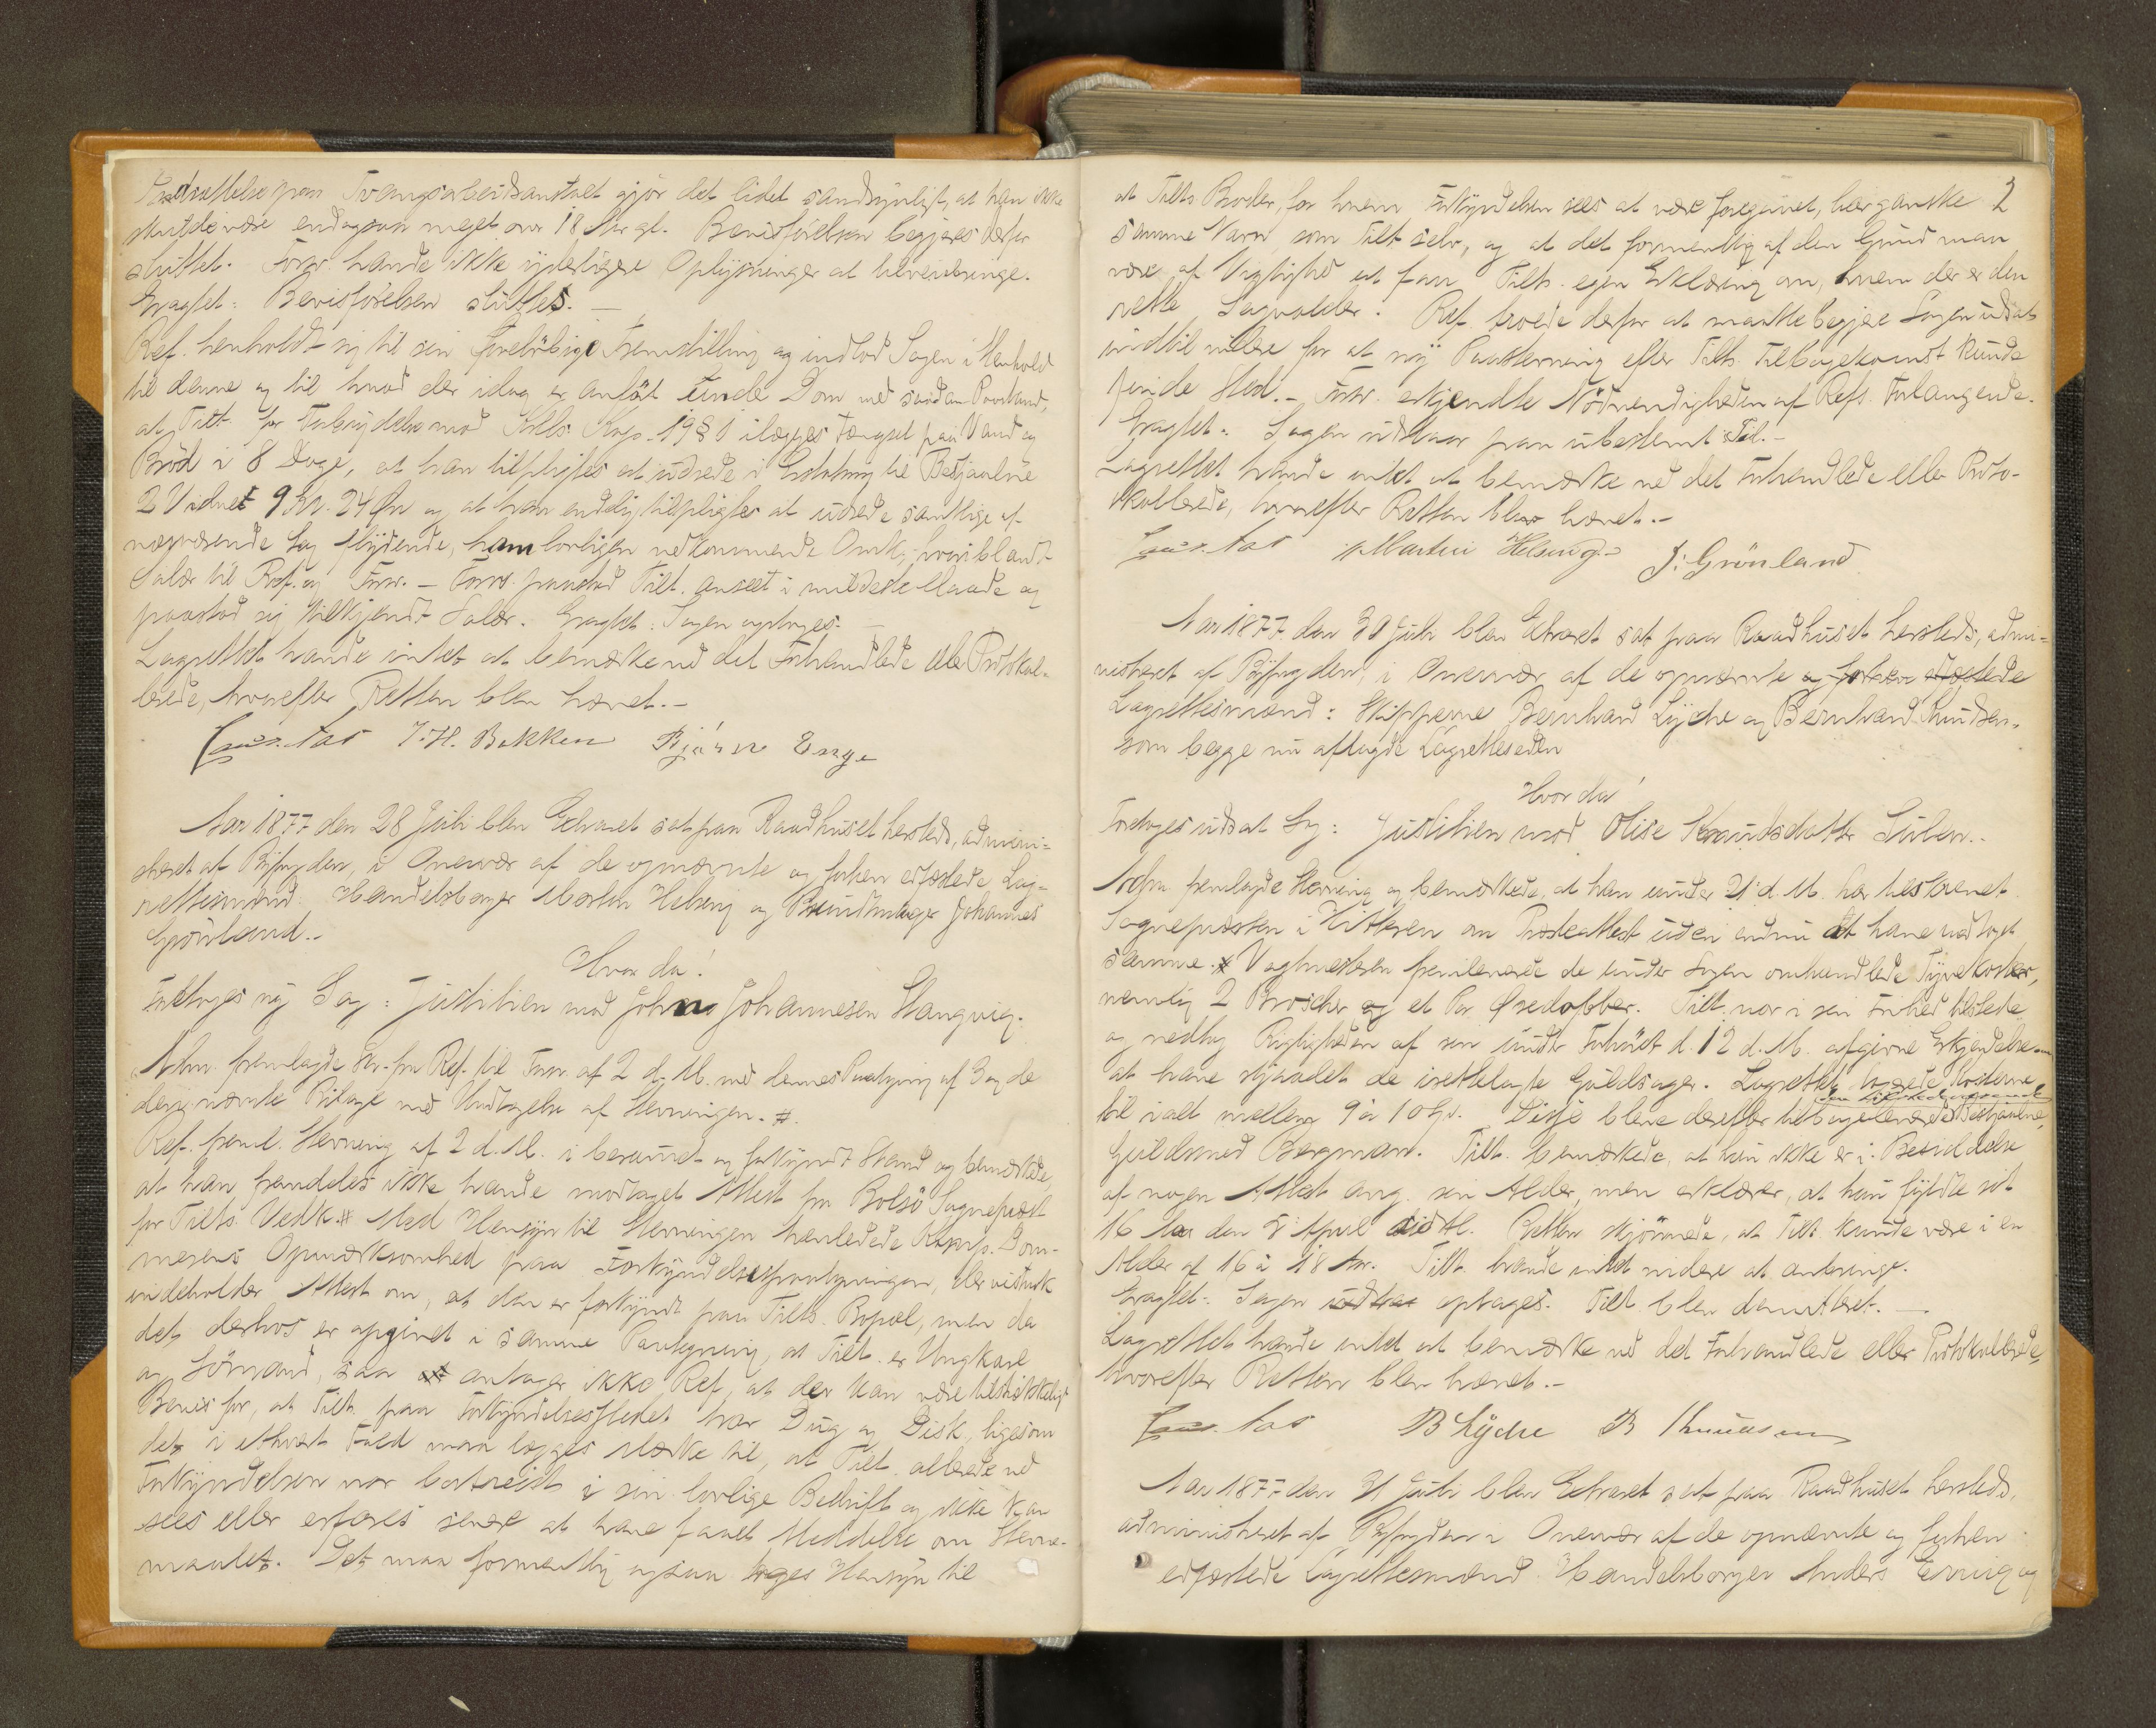 Indsættelse paa Tvangsarbeidsanstalt gjør det lidet sandsynligt, at han ikke
skulde være endogsaa meget over 18 Aar gl. Bevisførelsen begjæres derfor
sluttet. Forsv. havde ikke yderligere Oplysninger at tilveiebringe.
Eragtet: Bevisførelsen sluttes. —
Ref. henholdt sig til sin foreløbige Fremstilling og indlod Sagen i Henhold
til denne og til hvad der idag er anført under Dom med saadan Paastand,
at Tilt. for Forbrydelse mod Krls. Kap. 19 § 1 ilægges Fængsel paa Vand og
Brød i 8 Dage, at han tilpligtes at udrede i Erstatning til Bestjaalne
2 Vidnet 9 Kr. 24 Øre og at han endelig tilpligtes at udrede samtlige af
nærværende Sag flydende, ham lovligen vedkommende Omk., hvoriblandt
Salær til Ref. og Forsv. — Forsv. paastod Tilt. anseet i mildeste Maade og
paastod sig tilkjendt Salær. Eragtet: Sagen optages. —
Lagrettet havde intet at bemærke ved det Forhandlede eller Protokol-
lerede, hvorefter Retten blev hævet. —
J. H. Bakken Bjørn Enge
Aar 1877 den 28 Juli blev Extraret sat paa Raadhuset hersteds, admini-
streret af Byfogden, i Overvær af de opnævnte og forhen edfæstede Lag-
rettesmænd: Handelsborger Martin Helsing og Buntmager Johannes
Grönland. —
Hvor da!
Foretoges ny Sag: Justitien mod John Johannesen Stangvig.
Adm. fremlagde Skr. fra Ref. til Forsv. af 2 d. M. med dennes Paategning af 3 og de
deri nævnte Bilage med Undtagelse af Stevningen. #
Ref. freml. Stevning af 2 d. M. i berammet og forkyndt Stand og bemærkede,
at han fremdeles ikke havde modtaget Attest fra Bolsö Sognepræst
for Tilts. Vedk. # Med Hensyn til Stevningen henledede Dom-
merens Opmærksomhed paa Forkyndelsespaategningen, der vistnok
indeholder Attest om, at den er forkyndt paa Tilts. Bopæl, men da
det derhos er opgivet i samme Paategning, at Tilt. er Ungkarl
og Sömand, saa antager ikke Ref., at der kan være tilstrækkeligt
Bevis for, at Tilt. paa Forkyndelsesstedet har Dug og Disk, ligesom
det i ethvert Fald maa lægges Mærke til, at Tilt. allerede ved
Forkyndelsen var bortreist i sin lovlige Bedrift og ikke kan
sees eller erfares senere at have faaet Meddelelse om Stevne-
maalet. Det maa formentlig ogsaa tages Hensyn til
2
at Tilts. Broder, for hvem Forkyndelsen sees at være foregaaet, bær ganske
samme Navn som Tilt. selv, og at det formentlig af den Grund maa
være af Vigtighed at faa Tilts. egen Erklæring om, hvem der er den
rette Sagvolder. Ref. troede derfor at maatte begjære Sagen udsat
indtil videre for at ny Paastevning efter Tilts. Tilbagekomst kunde
finde Sted. — Forsv. erkjendte Nödvendigheden af Refs. Forlangende.
Eragtet: Sagen udstaar paa ubestemt Tid. —
Lagrettet havde intet at bemærke ved det Forhandlede eller Proto-
kollerede, hvorefter Retten blev hævet. —
Martin Helsing. J. Grönland
Aar 1877 den 30 Juli blev Extraret sat paa Raadhuset hersteds, admi-
nistreret af Byfogden, i Overvær af de opnævnte og forhen edfæstede
Lagrettesmænd: Skipperne Bernhard Lyche og Bernhard Knudsen,
som begge nu aflagde Lagretteseden
Hvor da!
Foretoges udsat Sag: Justitien mod Olise Knudsdatter Sulen. .
Adm. fremlagde Stevning og bemærkede, at han under 21 d. M. har tilskrevet
Sognepræsten i Hitteren om Præsteattest uden endnu at have modtaget
samme. # Vagtmesteren fremleverede de under Sagen omhandlede Tyvekoster,
nemlig 2 Broscher og et Par Øredobber. Tilt. var i sin Frihed tilstede
og vedtog Rigtigheden af sin under Forhöret d. 12 d. M. afgivne Erkjendelse om
at have stjaalet de irettelagte Guldsager. Lagrettet Kosterne
til ialt mellem 9 à 10 Kr. Disse bleve derefter tilbageleverede Bestjaalne,
den tilstedeværende
Guldsmed Bergman. Tilt. bemærkede, at hun ikke er i Besiddelse
af nogen Attest ang. sin Alder, men erklærer, at hun fyldte sit
16 Aar den 8 April sidstl. Retten skjönnede, at Tilt. kunde være i en
Alder af 16 à 18 Aar. Tilt. havde intet videre at anbringe.
Eragtet: Sagen udstaar optages. Tilt. blev demitteret. —
Lagrettet havde intet at bemærke ved det Forhandlede eller Protokollerede,
hvorefter Retten blev hævet. —
B Lyche B Knudsen
Aar 1877 den 31 Juli blev Extraret sat paa Raadhuset hersteds,
administreret af Byfogden i Overvær af de opnævnte og forhen
edfæstede Lagrettesmænd Handelsborger Anders og